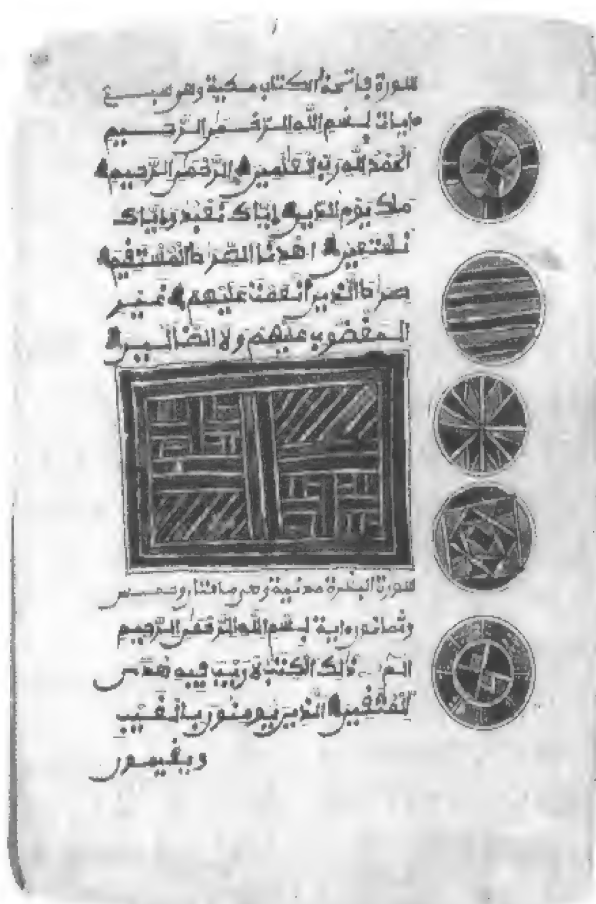 سورة فاتحة الكتاب مكية وهي سبع
ءايات بسم الله الرحمن الرحيم
الحمد لله رب العلمين الرحمن الرحيم
ملك يوم الدين إياك نعبد وإياك
نستعين اهدنا الصراط المستقيم
صراط الذين أنعمت عليهم غير
المغضوب عليهم ولا الضالين
سورة البقرة مدنية وهي مائتان وخمس
وثمانون ءاية بسم الله الرحمن الرحيم
الم ذلك الكتب لا ريب فيه هدى
للمتقين الذين يومنون بالغيب
ويقيمون